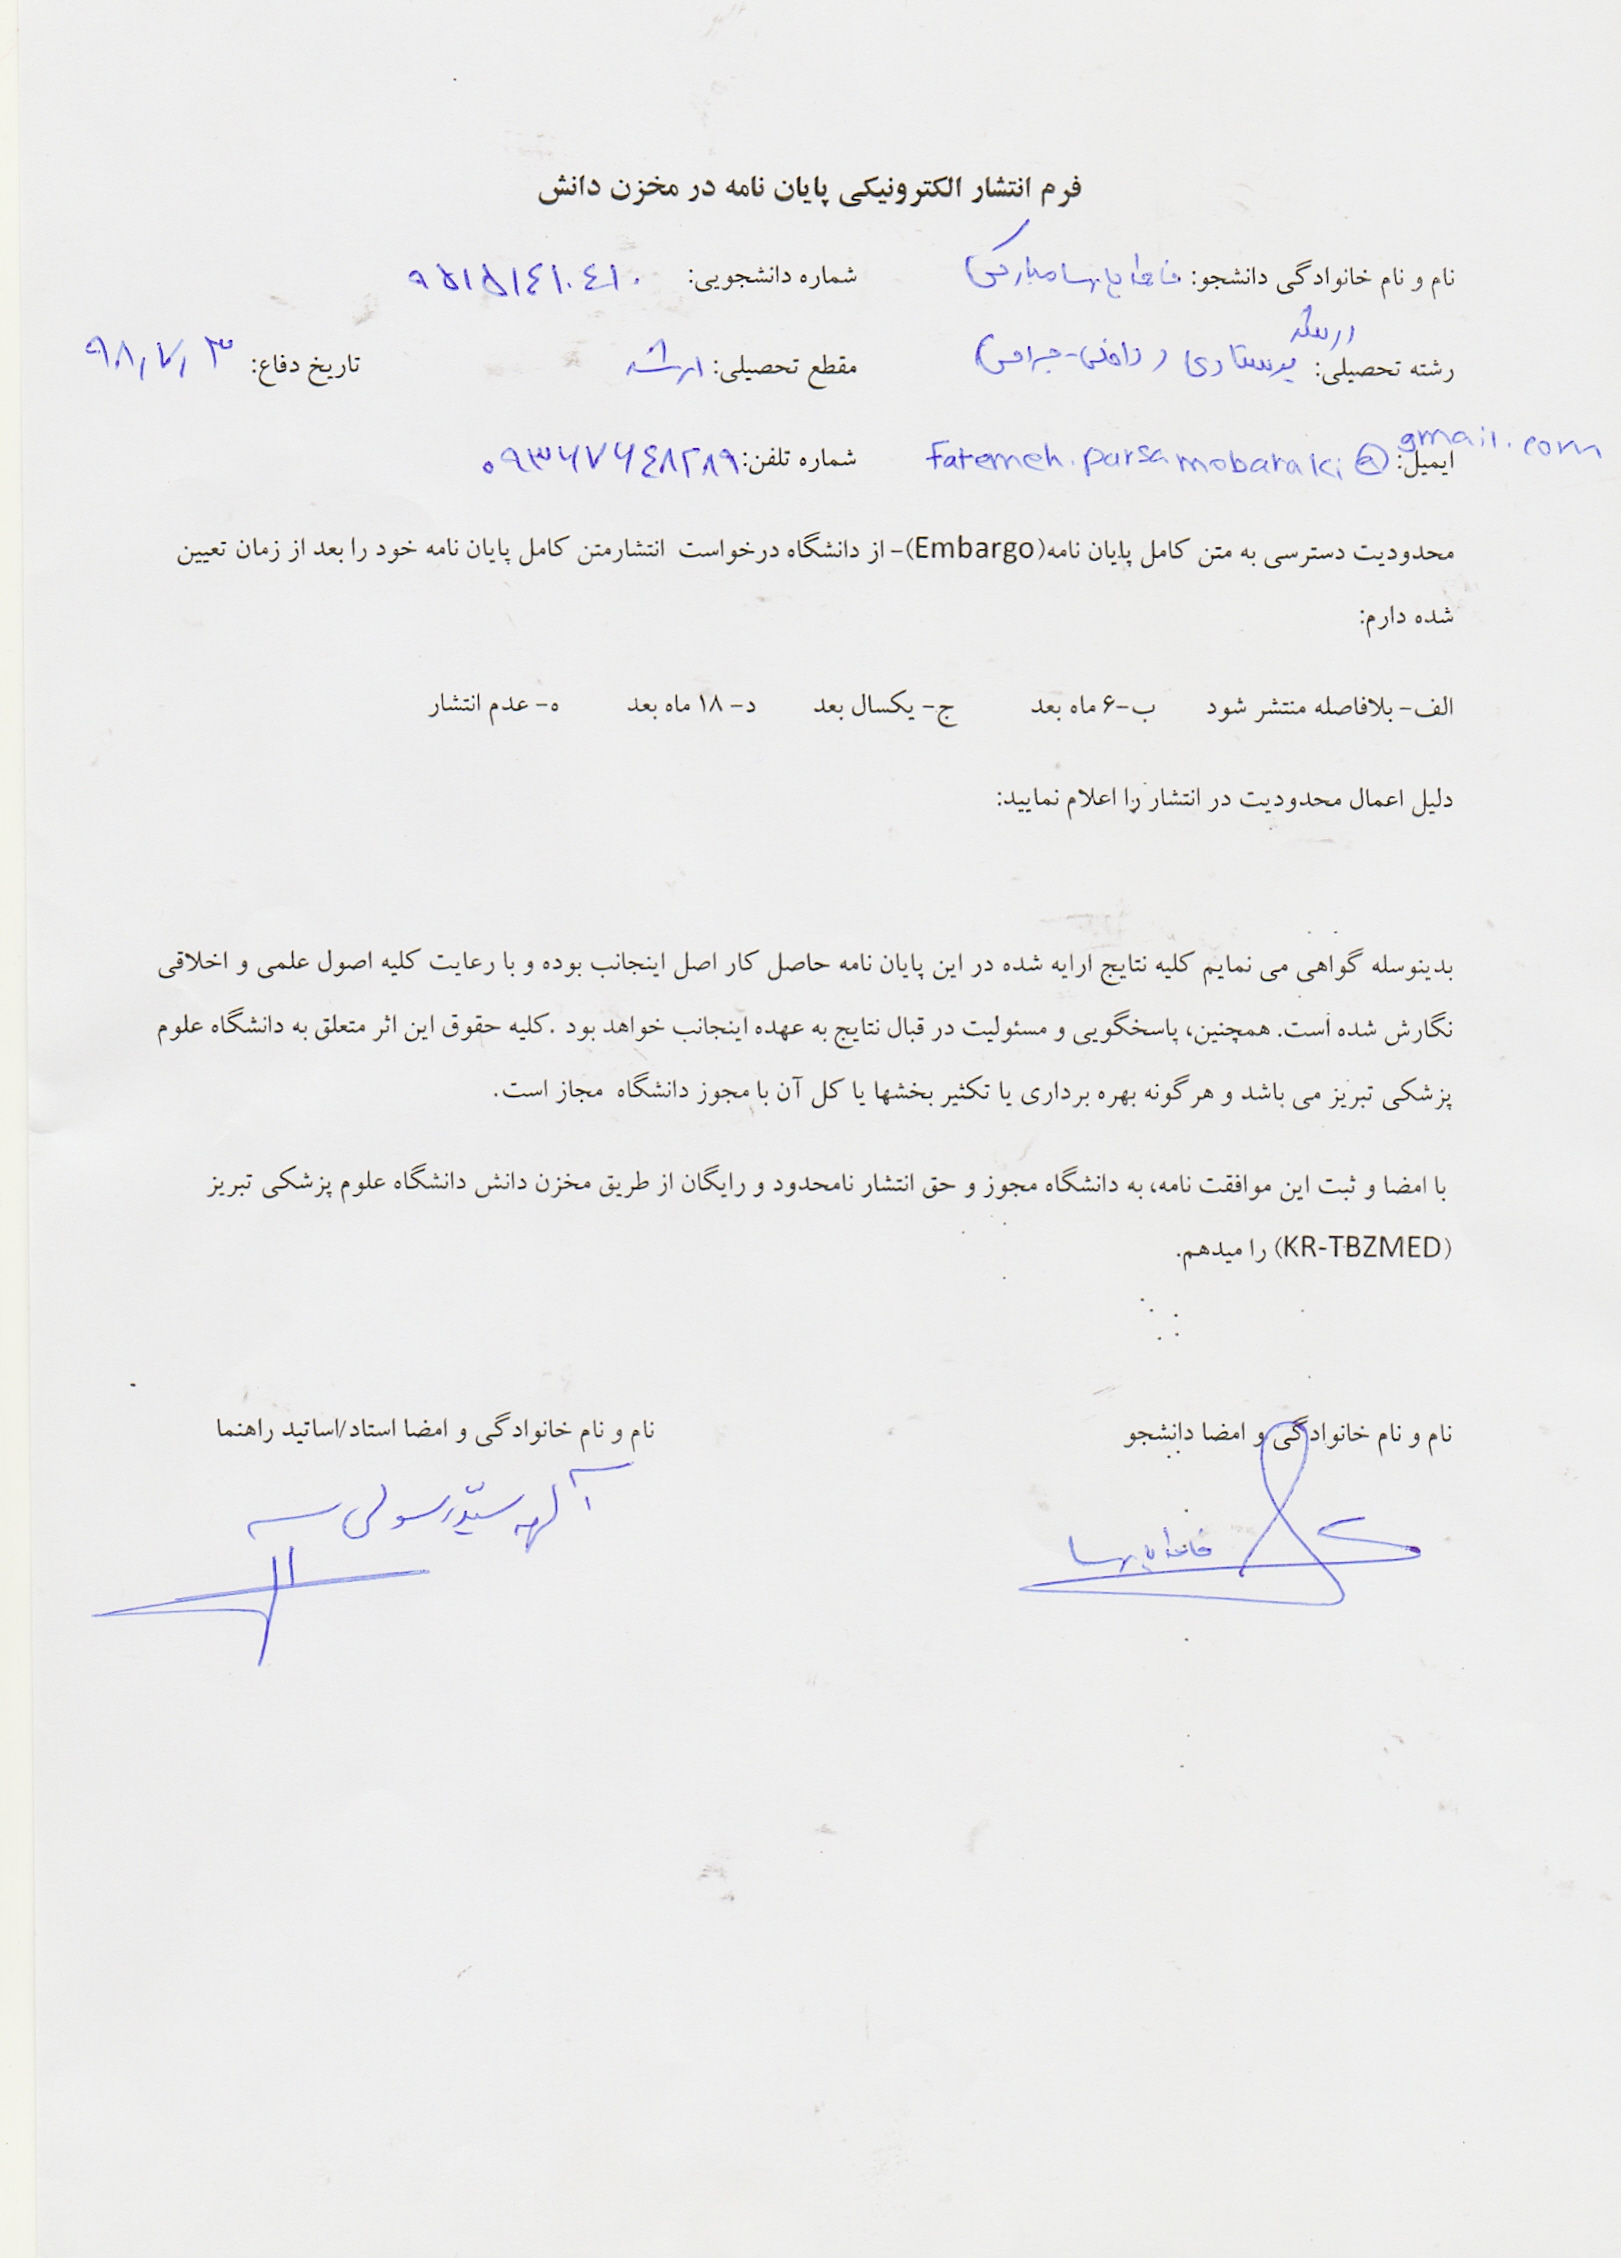 فرم انتشار الکترونیکی پایان نامه در مخزن دانش
نام و نام خانوادگی دانشجو: فاطمه پارسا مبارکی شماره دانشجویی: ۹۵۱۵۱۴۱۰۴۱۰
رشته تحصیلی: ارشد پرستاری داخلی-جراحی مقطع تحصیلی: ارشد تاریخ دفاع: ۹۸/۷/۳
ایمیل: fatemeh.parsamobaraki@gmail.com شماره تلفن: ۰۹۳۶۷۶۴۸۲۸۹
محدودیت دسترسی به متن کامل پایان نامه(Embargo)- از دانشگاه درخواست انتشارمتن کامل پایان نامه خود را بعد از زمان تعیین
شده دارم:
الف- بلافاصله منتشر شود ب-۶ ماه بعد ج- یکسال بعد د- ۱۸ ماه بعد ه- عدم انتشار
دلیل اعمال محدودیت در انتشار را اعلام نمایید:
بدینوسله گواهی می نمایم کلیه نتایج ارایه شده در این پایان نامه حاصل کار اصل اینجانب بوده و با رعایت کلیه اصول علمی و اخلاقی
نگارش شده است. همچنین، پاسخگویی و مسئولیت در قبال نتایج به عهده اینجانب خواهد بود .کلیه حقوق این اثر متعلق به دانشگاه علوم
پزشکی تبریز می باشد و هرگونه بهره برداری یا تکثیر بخشها یا کل آن با مجوز دانشگاه مجاز است.
با امضا و ثبت این موافقت نامه، به دانشگاه مجوز و حق انتشار نامحدود و رایگان از طریق مخزن دانش دانشگاه علوم پزشکی تبریز
(KR-TBZMED) را میدهم.
نام و نام خانوادگی و امضا دانشجو نام و نام خانوادگی و امضا استاد/اساتید راهنما
فاطمه پارسا سیدرسولی